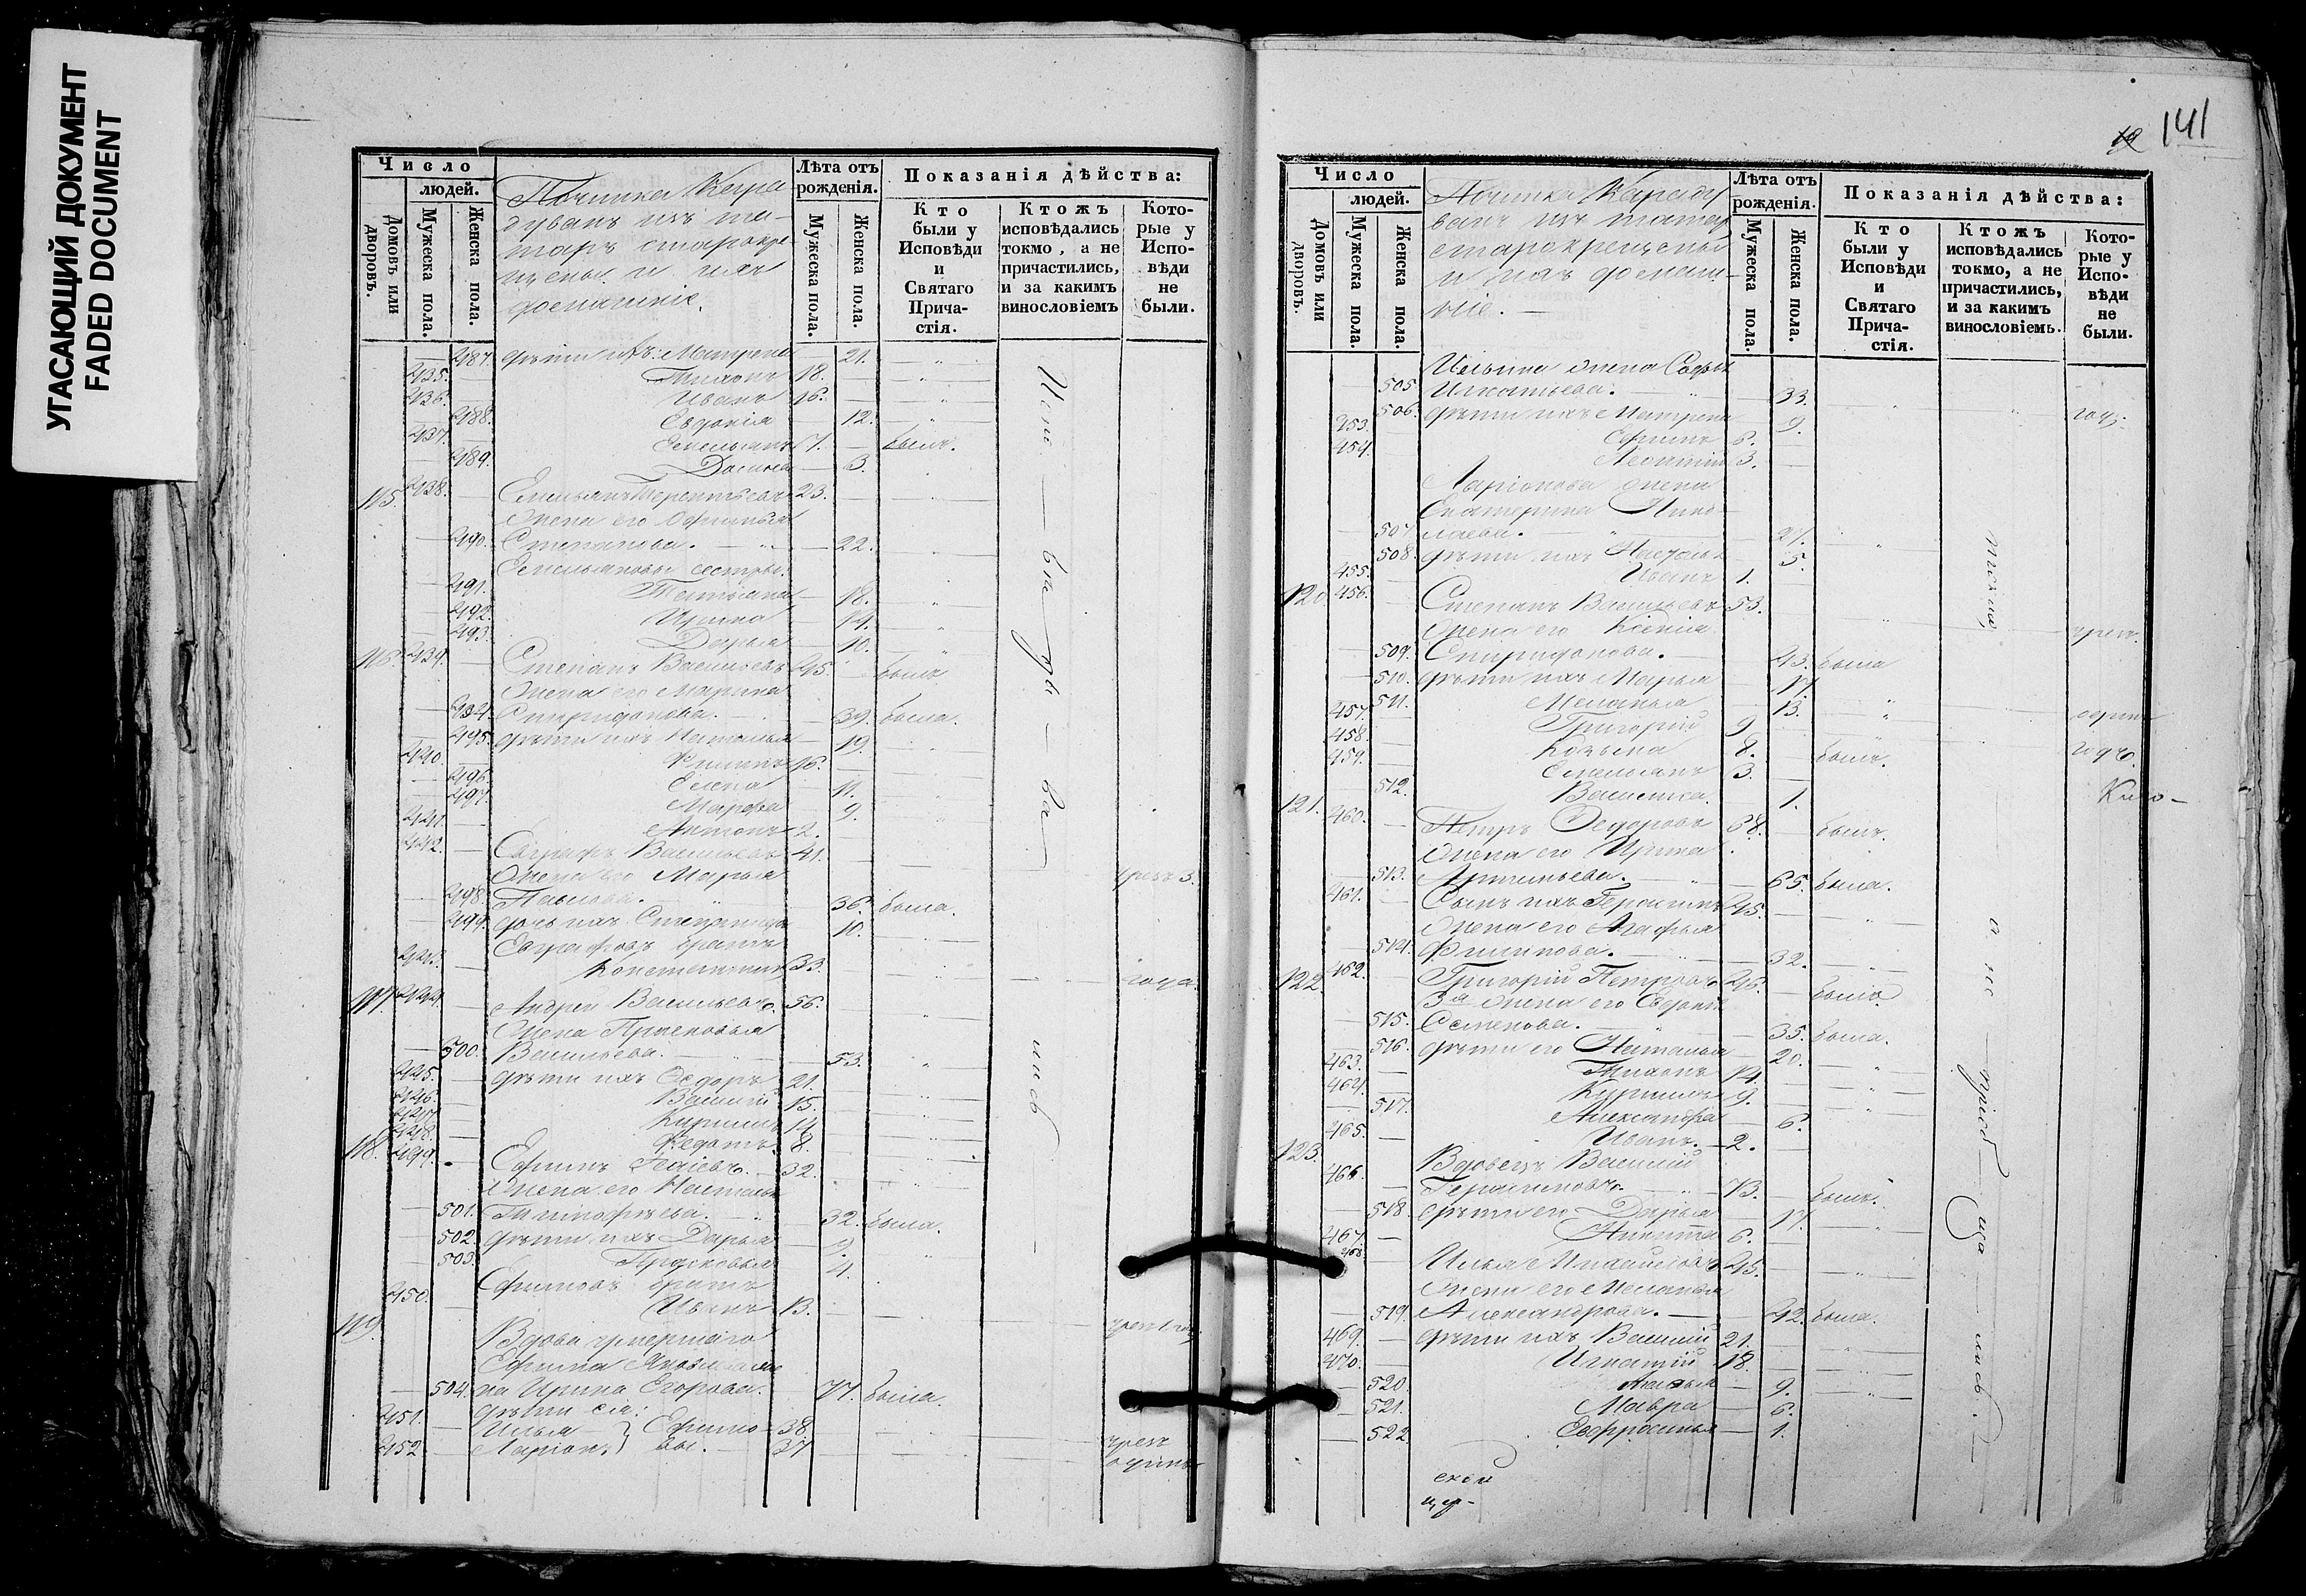 УГАСАЮЩИЙ ДОКУМЕНТ
FADED DOCUMENT
Число
людей.
Домовъ или дворовъ.
Мужеска пола.
Женска пола.
Починка Кара
дуванъ изъ та-
таръ старокре-
щены и ихъ
домашніе.
Лѣта отъ рожденія.
Мужеска пола.
Женска пола.
Показанія дѣйства:
Кто были у Исповѣди и Святаго Прича-стія.
Ктожъ исповѣдались токмо, а не причастились, и за какимъ винословіемъ
Кото-рые у Испо-вѣди не были.
487. дѣти ихъ: Матрена 21.
435. Тихонъ 18.
436. Иванъ 16.
488. Евдокія 12.
437. Емельянъ 7. былъ.
489. 3.
115. 438. Емельянъ Терентьевъ 23.
Жена его Офимья
490. Степанова. 22.
Емельяновы сестры:
491. Татьяна 18.
492. Ирина 14.
493. Дарья 10.
116. 439. Степанъ Васильевъ 45. былъ
Жена его Марина
494. Спиридонова. 39. была.
495. дѣти ихъ Наталья 19.
440. Филипъ 16.
496. Елена 11.
497. Марфа 9.
441. Антонъ 2.
442. Евграфъ Васильевъ 41.
Жена его Марья чрезъ 3.
498. Павлова. 36. была.
499. дочь ихъ Степанида 10.
Евграфовъ братъ
443. Константинъ 33. года.
117. 444. Андрей Васильевъ. 56.
Жена Прасковья
500. Васильева. 53.
445. дѣти ихъ Ѳедоръ 21.
446. Василій 15.
447. Кирилъ 14
448. Ѳедотъ 8.
118. 449. Ефимъ Исаіевъ. 32.
Жена его Настасья
501. Тимофѣева. 32. была.
502. дѣти ихъ Дарья 9.
503. Прасковья 4.
Ефимовъ братъ
450. Иванъ 13.
119. Вдова умершаго
Ефима
504. на Ирина Егорова. 77. была.
дѣти ея:
451. Илья } Ефимо- 38.
452 Ларіонъ } вы. 37 чрезъ
одинъ
141
Число
людей.
Домовъ или дворовъ.
Мужеска пола.
Женска пола.
Починка Караду
ванъ изъ татаръ
старокрещены
и ихъ домаш-
ніе.
Лѣта отъ рожденія.
Мужеска пола.
Женска пола.
Показанія дѣйства:
Кто были у Исповѣди и Святаго Прича-стія.
Ктожъ исповѣдались токмо, а не причастились, и за какимъ винословіемъ.
Кото-рые у Испо-вѣди не были.
Ильина жена Софья
505 Игнатьева. 33.
506. дѣти ихъ Матрена 9. годъ.
453. Ефимъ 6.
454. Леонтій 3.
Ларіонова жена
Екатерина Нико-
507 лаева. 27.
508. дѣти ихъ Настасья 5.
455. Иванъ 1.
120 456. Степанъ Васильевъ 53.
Жена его Ксенія чрезъ
509. Спиридонова. 43. была
510. дѣти ихъ Марья 17.
511. Меланья 13. одинъ
457. Григорій 9
458. Козьма 8. былъ. годъ.
459. Емельянъ 3.
512. Василиса. 1.
121. 460. Петръ Ѳедоровъ 68. былъ.
Жена его Ирина
513. Артемьева. 65. была.
461. Сынъ ихъ Герасимъ 45.
Жена его Агафья
514. Филипова. 32.
122. 462. Григорій Петровъ 46. былъ
3я жена его Евдокія
515. Семенова. 35. была.
516. дѣти его Наталья 20.
463. Тихонъ 14.
464. Кирилъ 9.
517. Александра 6.
465. Иванъ. 2.
123. Вдовецъ Василій
466. Герасимовъ. 73. былъ.
518. дѣти его Дарья 17.
467. Никита 6.
468 Илья Михайловъ 45.
Жена его Меланья
519. Александрова. 42. была.
469. дѣти ихъ Василій 21.
470. Игнатій 18.
520. 9.
521. Мавра 6.
522. Евфросинья 1.